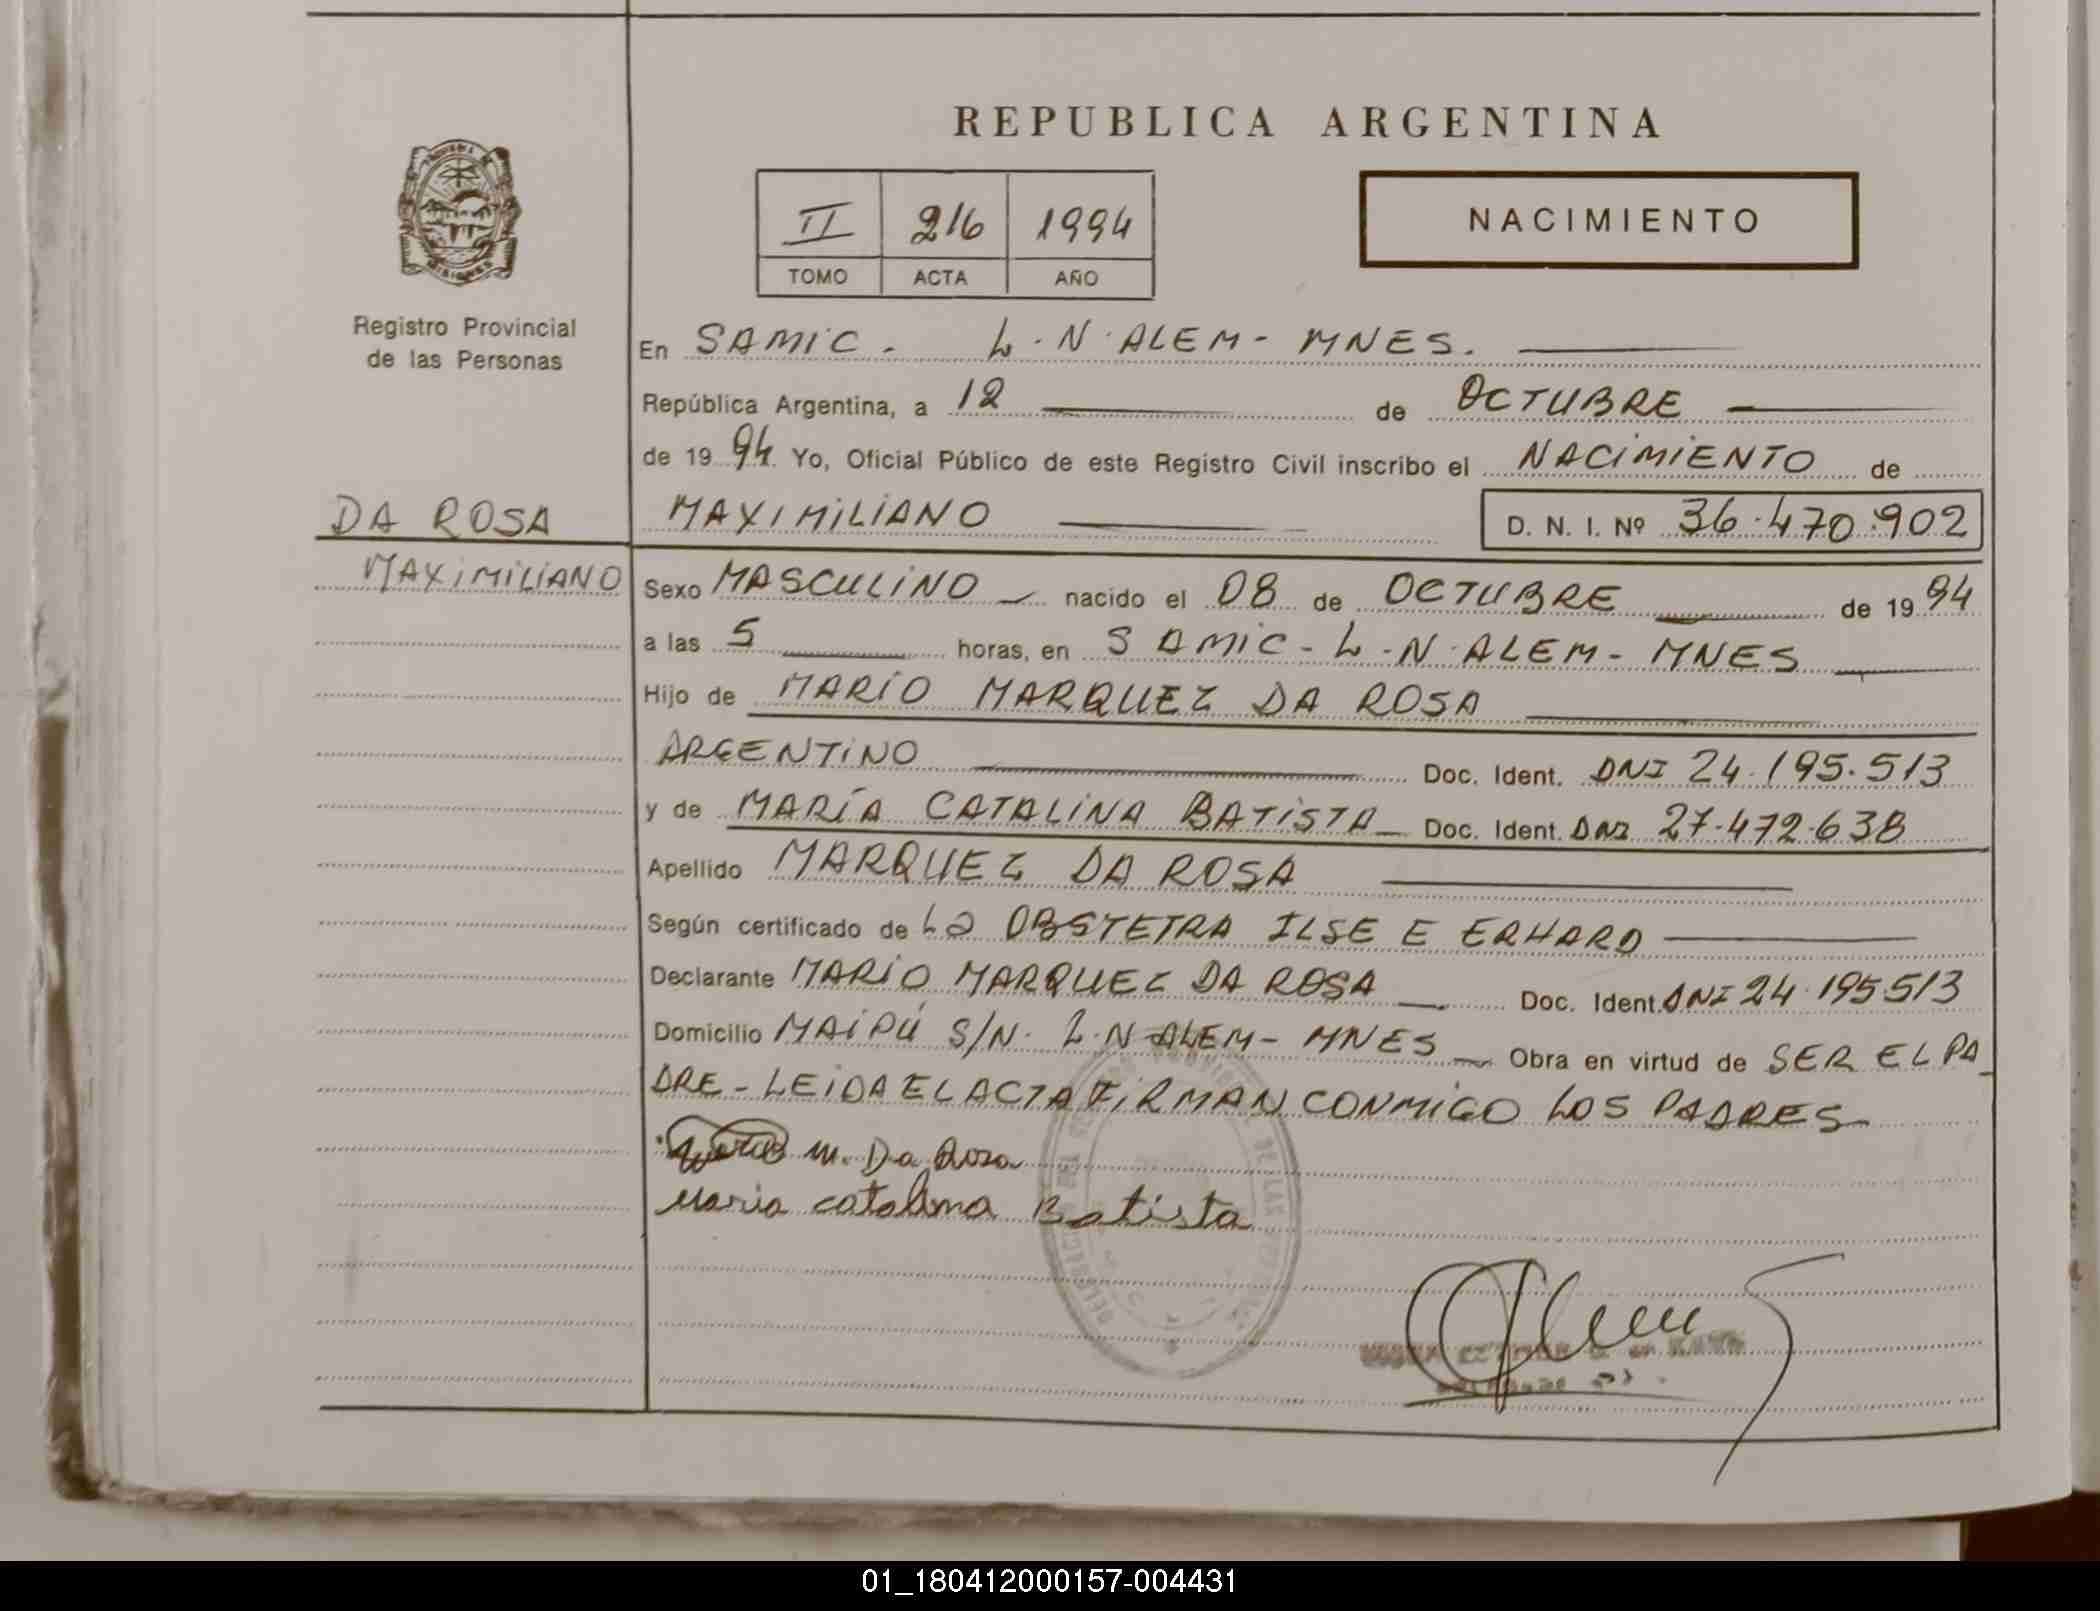 REPUBLICA ARGENTINA
II 216 1994
TOMO ACTA AÑO
NACIMIENTO
MISIONES
Registro Provincial
de las Personas
En SAMIC - L.N. ALEM - MNES.
República Argentina, a 12 de OCTUBRE
de 1994 Yo, Oficial Público de este Registro Civil inscribo el NACIMIENTO de
DA ROSA MAXIMILIANO D. N. I. Nº 36.470.902
MAXIMILIANO Sexo MASCULINO nacido el 08 de OCTUBRE de 1994
a las 5 horas, en SAMIC - L.N. ALEM - MNES
Hijo de MARIO MARQUEZ DA ROSA
ARGENTINO Doc. Ident. DNI 24.195.513
y de MARÍA CATALINA BATISTA Doc. Ident. DNI 27.472.638
Apellido MARQUEZ DA ROSA
Según certificado de La OBSTETRA ILSE E ERHARD
Declarante MARIO MARQUEZ DA ROSA Doc. Ident. DNI 24.195513
Domicilio MAIPÚ S/N. L.N ALEM - MNES Obra en virtud de SER EL PA
DRE - LEIDA EL ACTA FIRMAN CONMIGO LOS PADRES
M. Da Rosa
Maria catalina Batista
01_180412000157-004431